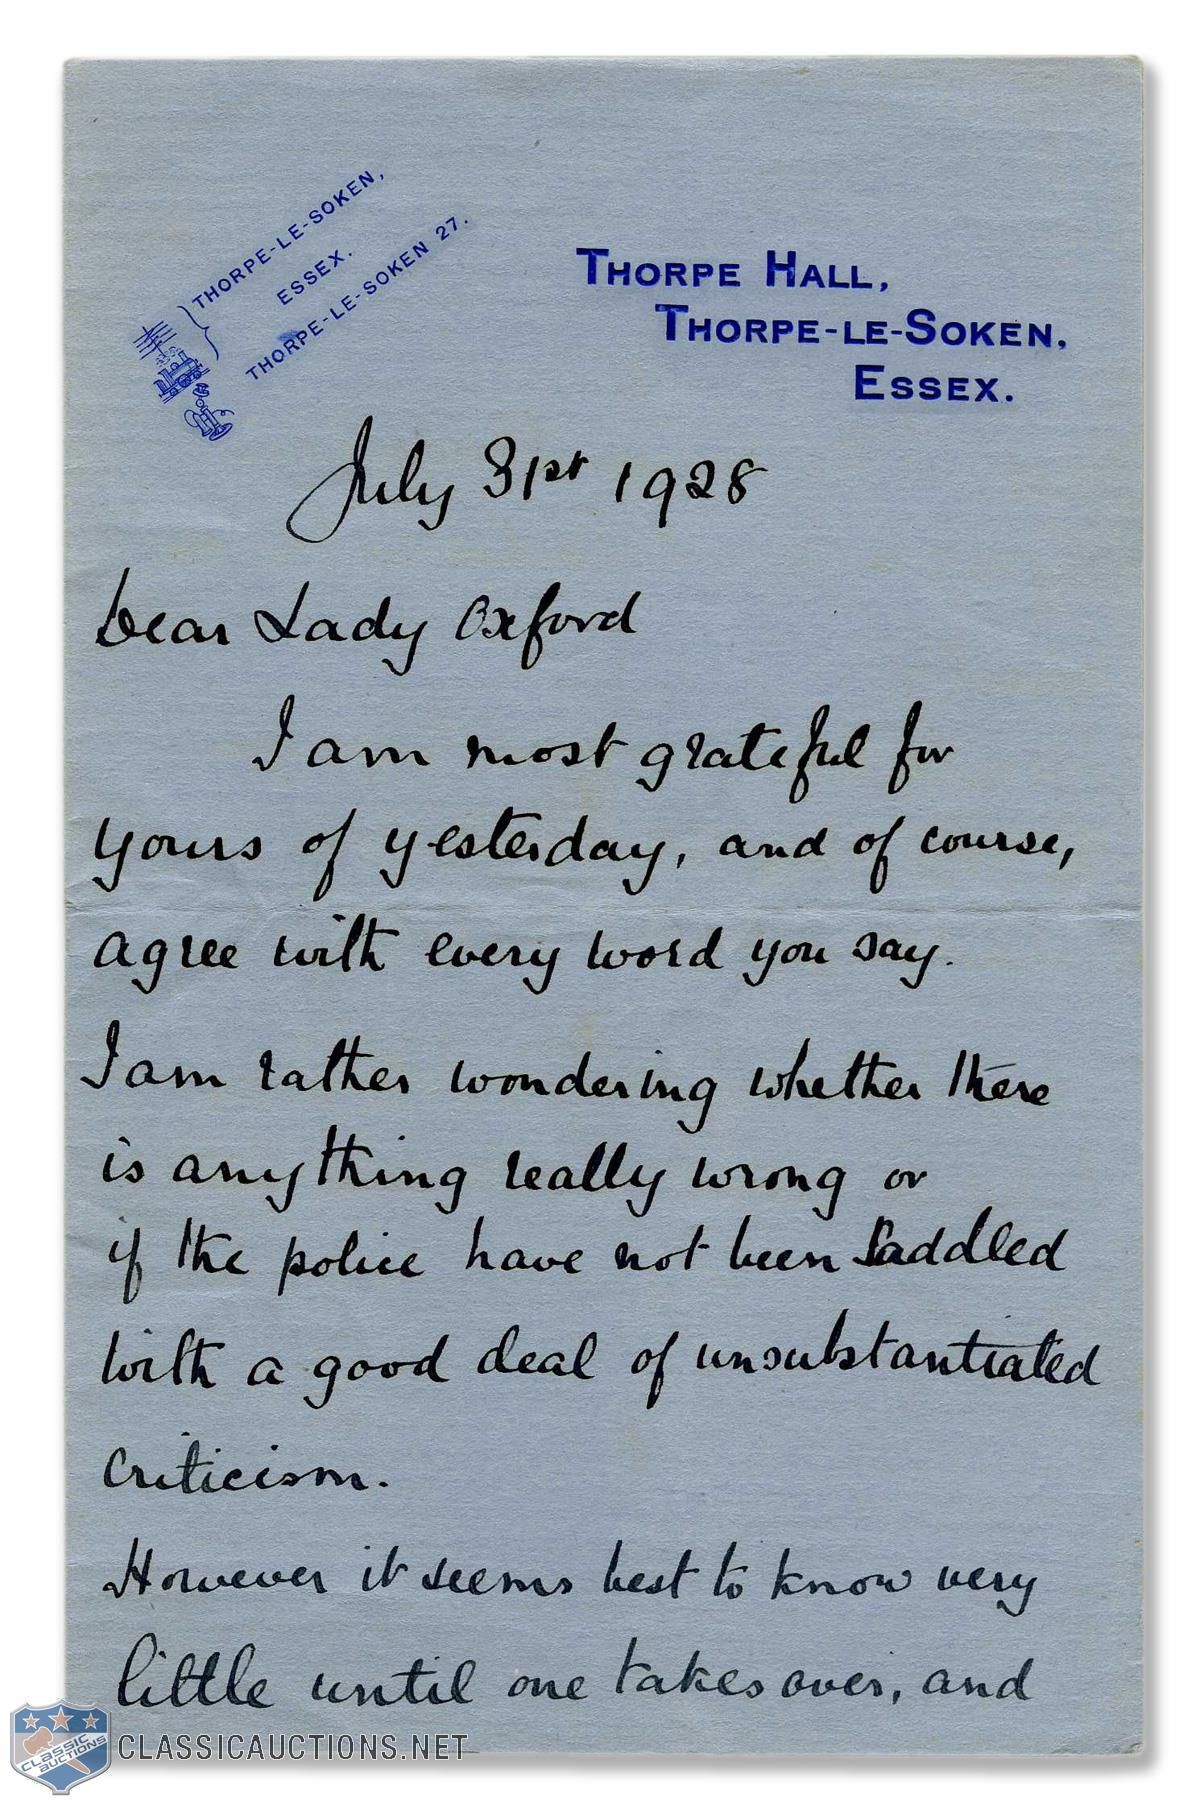 THORPE-LE-SOKEN,
ESSEX.
THORPE-LE-SOKEN 27.
THORPE HALL,
THORPE-LE-SOKEN,
ESSEX.
July 31st 1928
Dear Lady Oxford
I am most grateful for
yours of yesterday, and of course,
agree with every word you say.
I am rather wondering whether there
is anything really wrong or
if the police have not been saddled
with a good deal of unsubstantiated
criticism.
However it seems best to know very
little until one takes over, and
CLASSIC
AUCTIONS
CLASSICAUCTIONS.NET